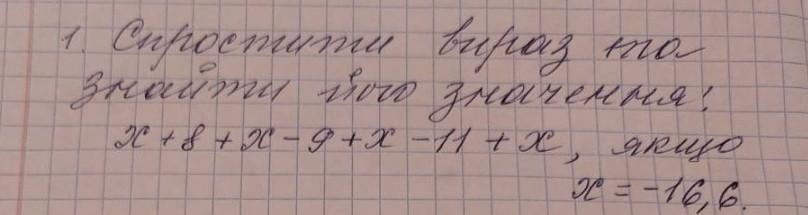 1. Спростити вираз та
знайти його значення:
x + 8 + x - 9 + x - 11 + x, якщо
x = -16,6.